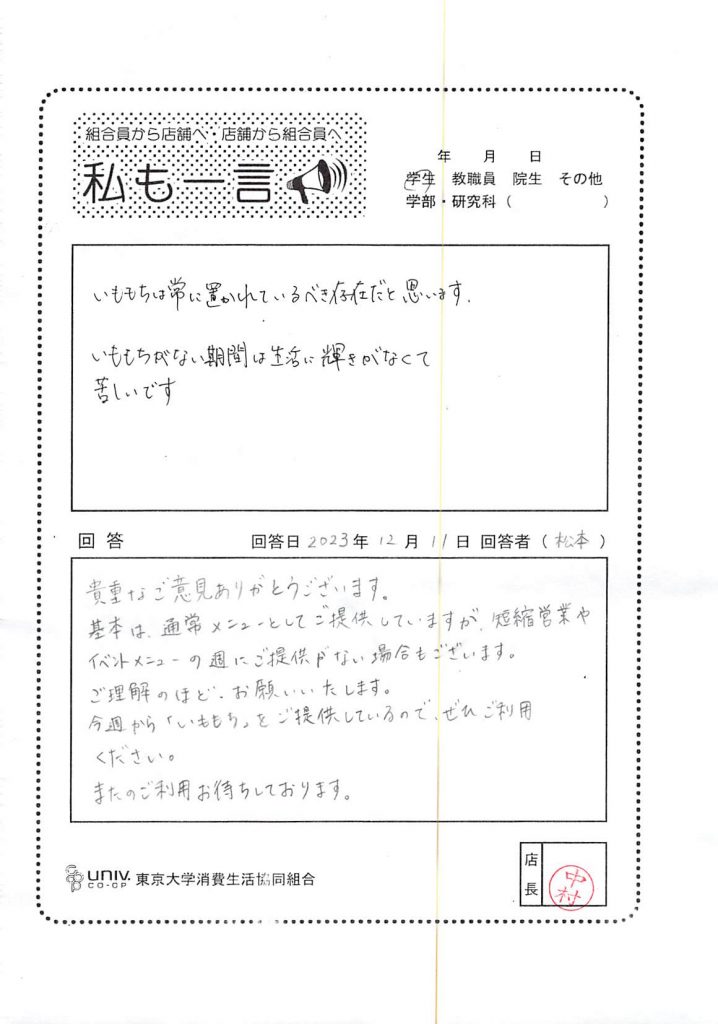 組合員から店舗へ・店舗から組合員へ
私も一言
年 月 日
学生 教職員 院生 その他
学部・研究科（ ）
いももちは常に置かれているべき存在だと思います.
いももちがない期間は生活に輝きがなくて
苦しいです
回答 回答日 2023年 12月 11日 回答者（松本）
貴重なご意見ありがとうございます。
基本は、通常メニューとしてご提供していますが、短縮営業や
イベントメニューの週にご提供がない場合もございます。
ご理解のほど、お願いいたします。
今週から「いももち」をご提供しているので、ぜひご利用
ください。
またのご利用お待ちしております。
UNIV. CO-OP 東京大学消費生活協同組合
店長
中村